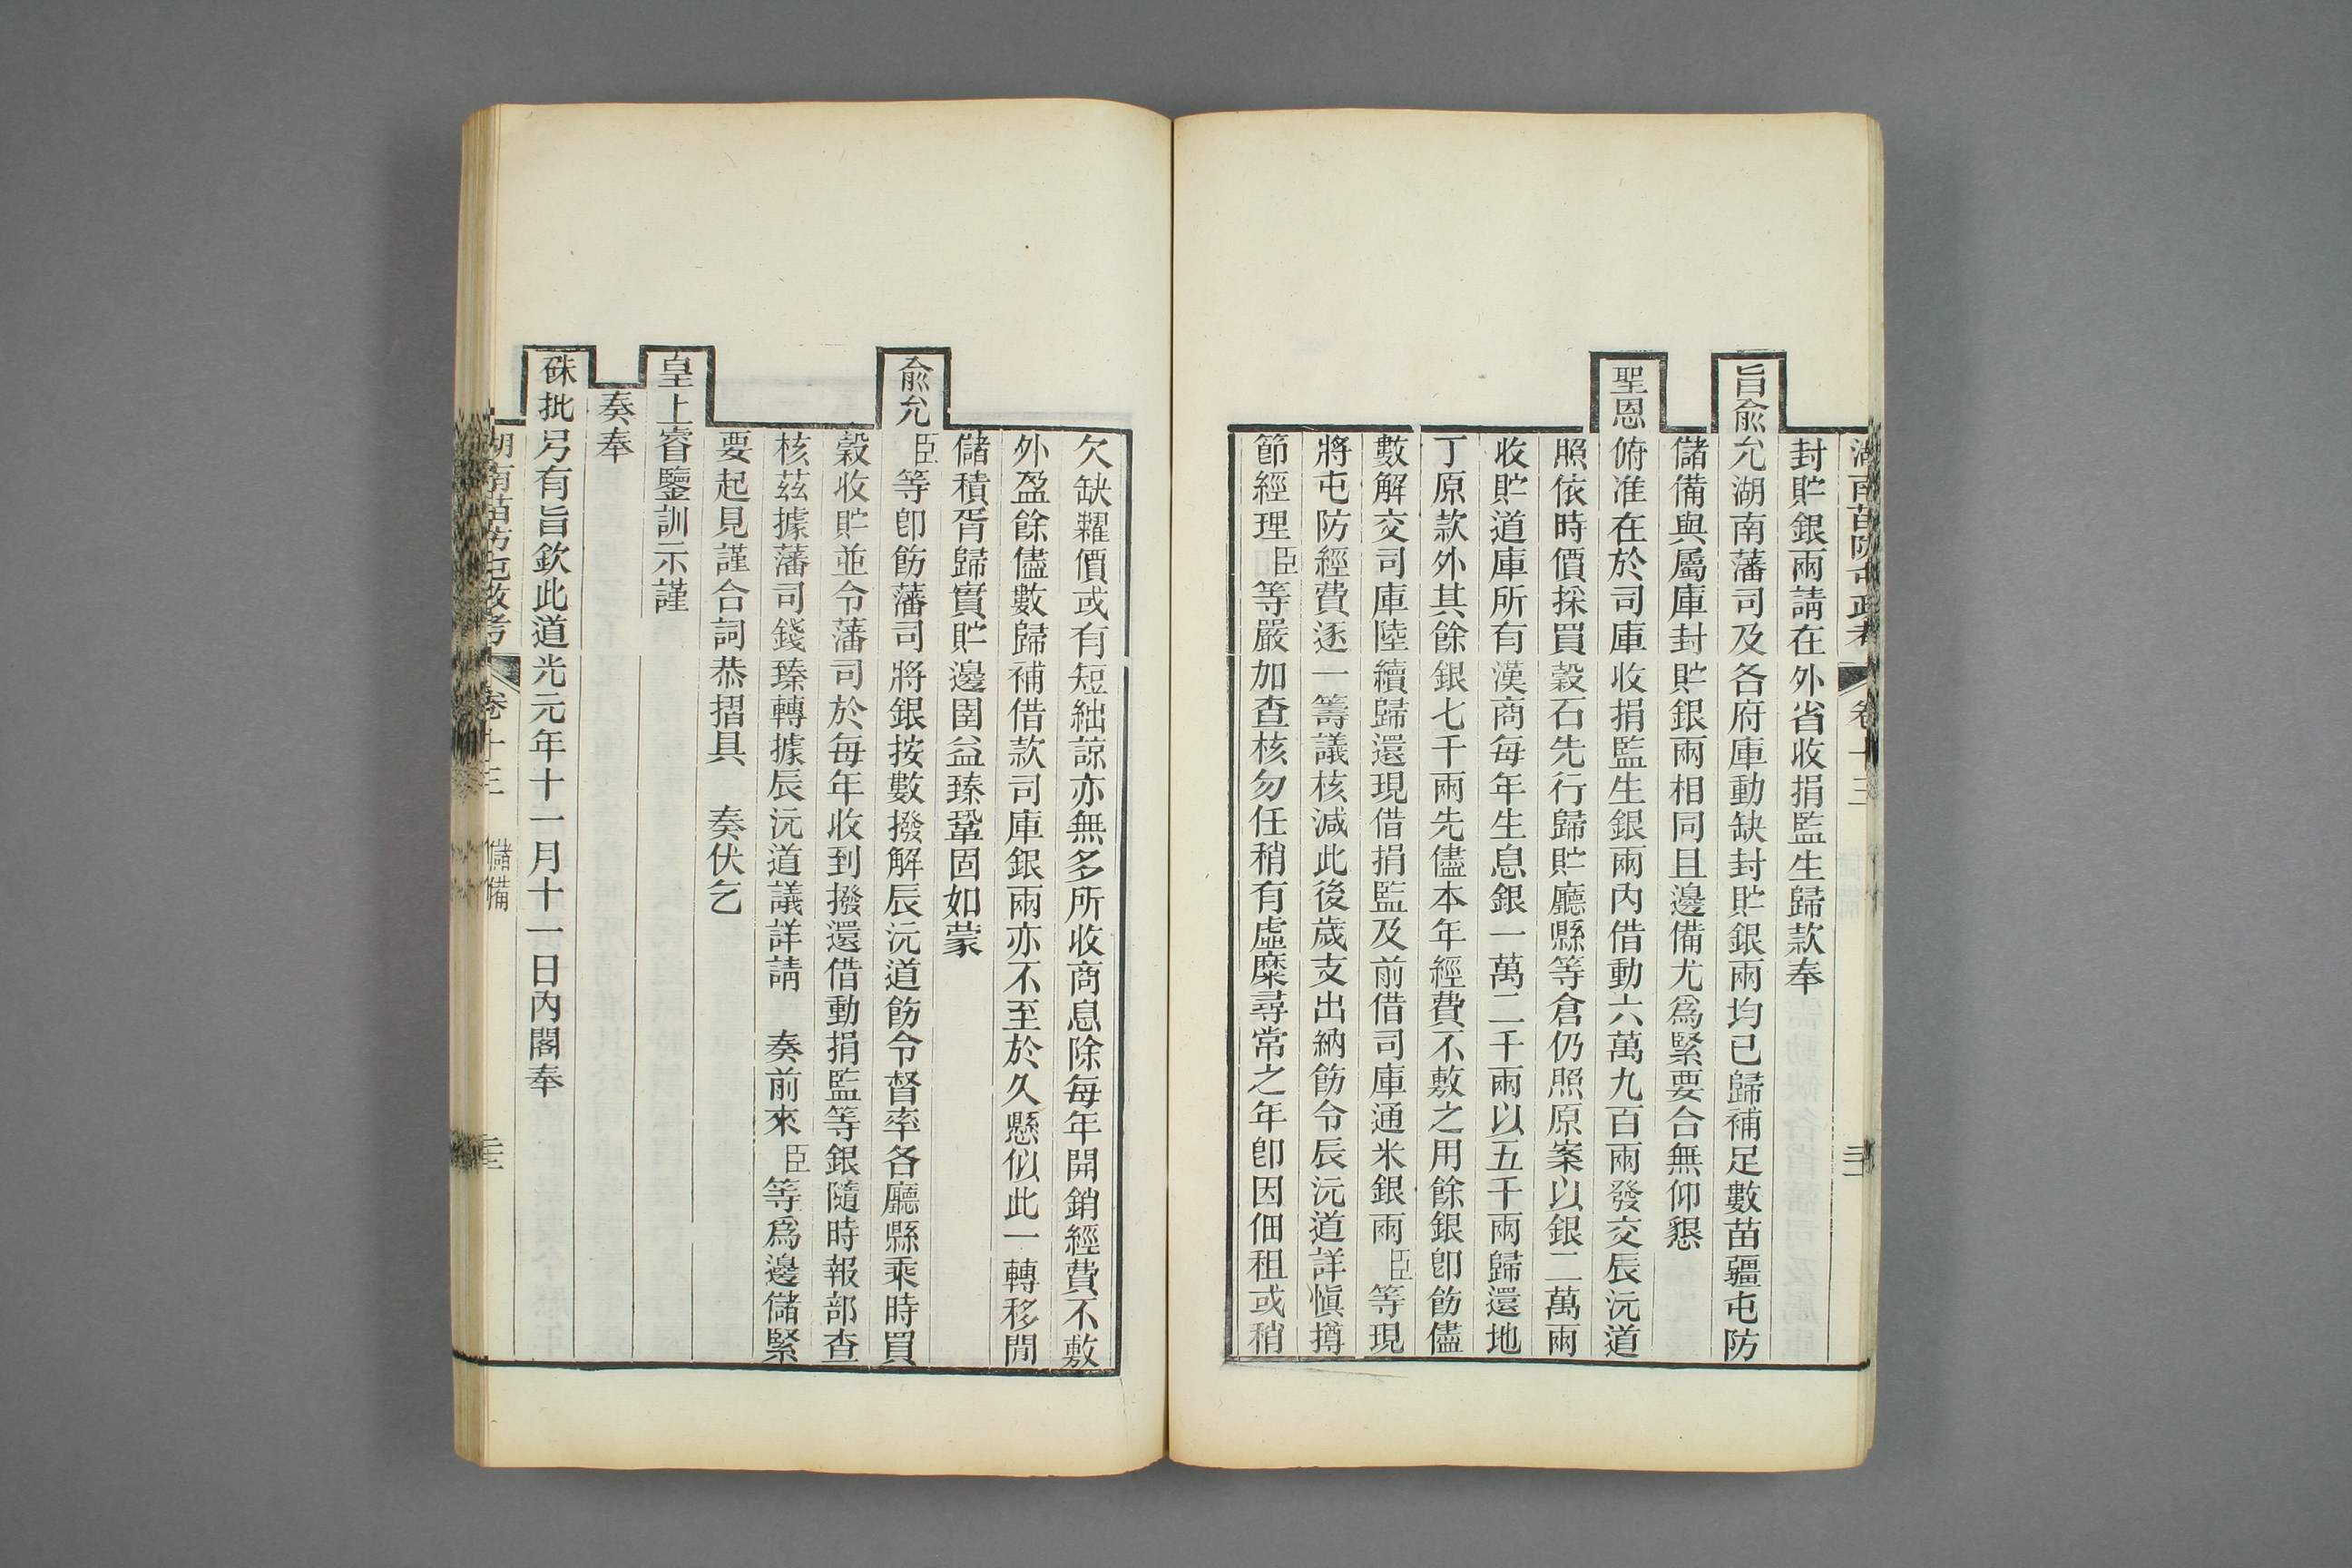 湖南苗防屯政考 卷十三
封貯銀兩請在外省收捐監生歸款奉
旨俞允湖南藩司及各府庫動缺封貯銀兩均已歸補足數苗疆屯防
儲備與屬庫封貯銀兩相同且邊備尤爲緊要合無仰懇
聖恩俯准在於司庫收捐監生銀兩內借動六萬九百兩發交辰沅道
照依時價採買穀石先行歸貯廳縣等倉仍照原案以銀二萬兩
收貯道庫所有漢商每年生息銀一萬二千兩以五千兩歸還地
丁原款外其餘銀七千兩先儘本年經費不敷之用餘銀卽飭儘
數解交司庫陸續歸還現借捐監及前借司庫通米銀兩臣等現
將屯防經費逐一籌議核減此後歲支出納飭令辰沅道詳愼撙
節經理臣等嚴加查核勿任稍有虛糜尋常之年卽因佃租或稍
欠缺糶價或有短絀諒亦無多所收商息除每年開銷經費不敷
外盈餘儘數歸補借款司庫銀兩亦不至於久懸似此一轉移閒
儲積胥歸實貯邊圉益臻鞏固如蒙
俞允臣等卽飭藩司將銀按數撥解辰沅道飭令督率各廳縣乘時買
穀收貯並令藩司於每年收到撥還借動捐監等銀隨時報部查
核茲據藩司錢臻轉據辰沅道議詳請 奏前來臣等爲邊儲緊
要起見謹合詞恭摺具 奏伏乞
皇上睿鑒訓示謹
奏奉
硃批另有旨欽此道光元年十一月十一日內閣奉
湖南苗防屯政考 卷十三 儲備